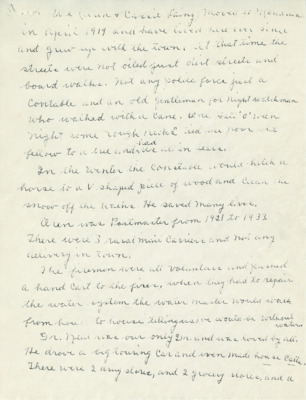 We Oren & Carrol Strong Moved to
in April 1919 and have lived here ever since
and grew up with the town. At that time the
streets were not oiled just dirt streets and
board walks. Not any police force just a
Constable and an old gentleman for night watchman
who walked with a cane. One
night some rough necks tied our poor
fellow to a tree and left all in tears.
In the Winter the Constable would hitch a
horse to a V shaped piece of wood and clean the
snow off the walks. He saved many lives.
Oren was Postmaster from 1921 to 1933
There were 3 rural Mail Carriers and not any
delivery in town.
The firemen were all Volunteer and pushed
a hand Cart to the fires, when they had to repair
the water system the water master would walk
from house to house telling us we would be without
water.
Dr. was our only Dr. and was loved by all.
He drove a big touring Car and even made house Calls.
There were 2 drug stores, and 2 grocery stores, and a